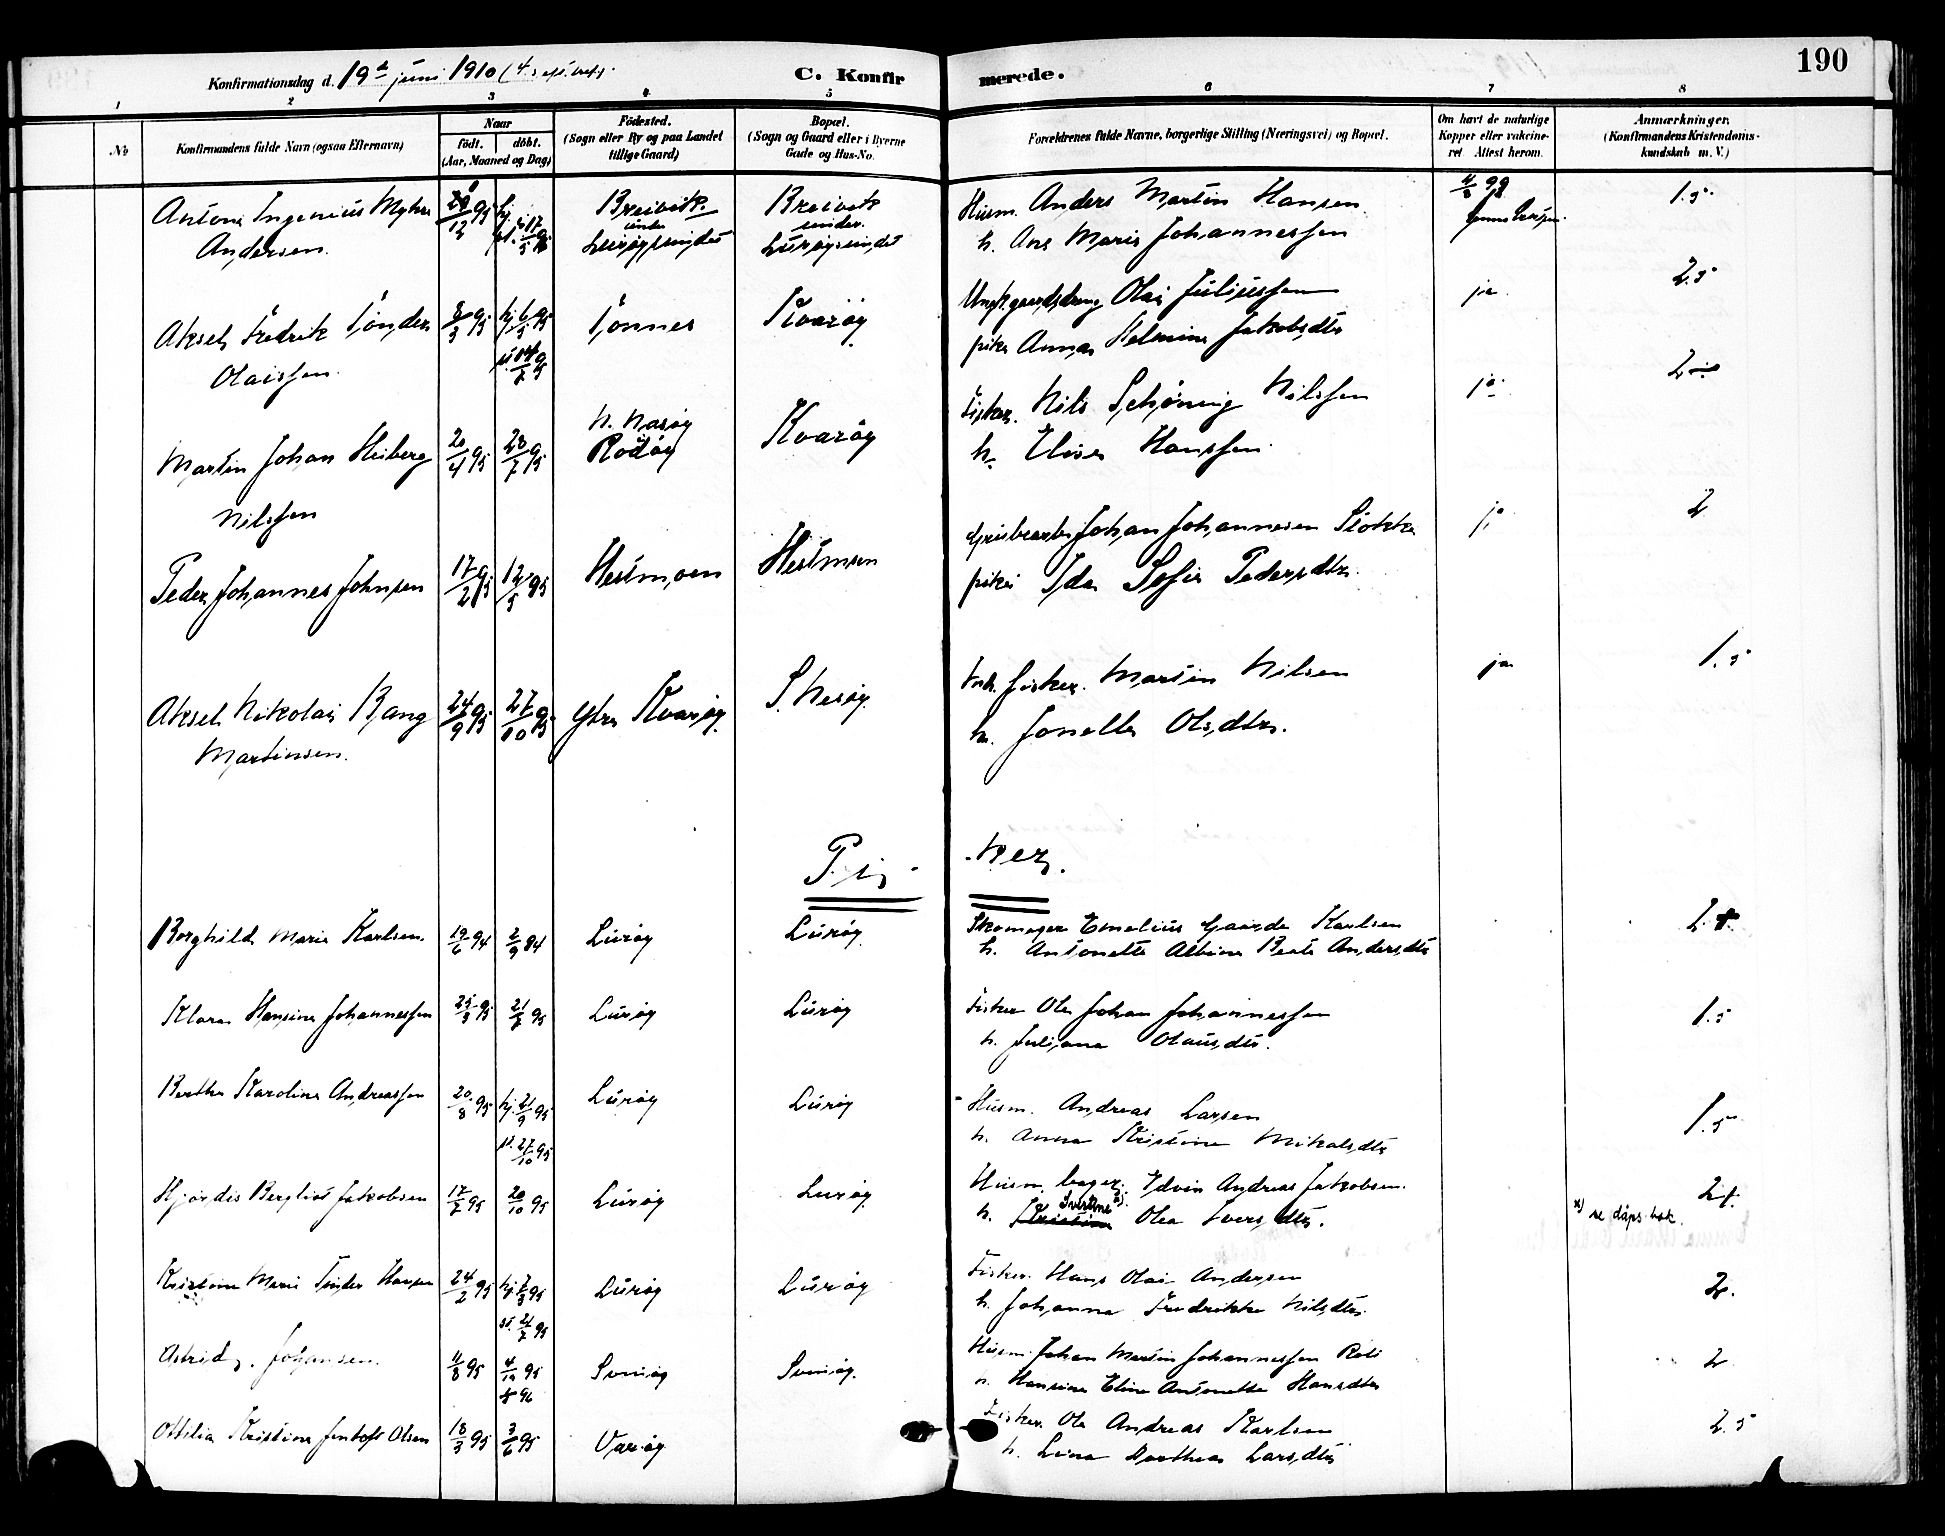 190
Konfirmationsdag d. 19de juni 1910
C. Konfirmerede.
1 2 3 4 5 6 7 8
No
Konfirmandens fulde Navn (ogsaa Efternavn)
Naar
födt. döbt.
(Aar, Maaned og Dag)
Födested.
(Sogn eller By og paa Landet
tillige Gaard)
Bopæl.
(Sogn og Gaard eller i Byerne
Gade og Hus-No.
Forældrenes fulde Navne, borgerlige Stilling (Næringsvei) og Bopæl.
Om havt de naturlige
Kopper eller vakcine-
ret. Attest herom.
Anmærkninger.
(Konfirmandens Kristendoms-
kundskab m. V.)
Anton Ingenius Myhre Breivik. Breivik Husm. Anders Martin Hansen 1.5
Andersen. under Lurøygsundet under Lurøygsundet h. Ane Marie Johannessen
Aksel Fredrik Tønder 8/3 95 hj. 6/5 95 Tönnes Kvarøy Olai Juliussen ja 2.5
Olaissen. pike Anna Helmine Jakobsdtr
Martin Johan Heiberg 20/4 95 28/7 95 N. Nesøy Rödøy Kvarøy Fisker. Nils Schøning Nilssen ja
Nilssen h. Elise Hanssen
Peder Johannes Johnsen 17/2 95 12/5 95 Hestmoen Hestmoen Johan Johannesen Stokke ja 2
pike Ida Sofie Pedersdtr.
Aksel Nikolai Bang 24/9 95 27/10 95 Ytre Kvarøy. S. Nesøy. fisker. Martin Nilsen ja 1.5
Martinsen. h. Jonette Olsdtr.
Pi- -ker.
Borghild Marie Karlsen. 19/6 94 2/9 94 Lurøy Lurøy Skomager Emelius Gaarde Karlsen 2.
h. Antonette Albine Beate Andersdtr
Klara Hansine Johannessen 25/3 95 21/7 95 Lurøy Lurøy Fisker Ole Johan Johannessen 1.5
h. Juliane Olausdtr.
Berthe Karoline Andreassen 20/8 95 hj. 21/9 95 Lurøy Lurøy Husm. Andreas Larsen 1.5
st. 27/10 95 h. Anna Kristine Mikalsdtr
Hjørdis Bergliot Jakobsen 17/7 95 20/10 95 Lurøy Lurøy Husm bager. Edvin Andreas Jakobsen.
h. Kristine Sverdine x) Olea Iversdtr. x) se dåps bok.
Kristine Marie Tønder Hansen 24/2 95 hj. 7/3 95 Lurøy Lurøy Fisker. Hans Olai Andersen 2.
st. 21/7 95 h. Johanna Fredrikke Nilsdtr.
Astrid Johansen. 11/8 95 4/10 95 Sveniøy Sveniøy. Husm Johan Martin Johannessen 2
h. Hansine Eline Antonette Hansdtr
Ottilia Kristine Jentoft Olsen 18/3 95 3/6 95 Varøy Fisker. Ole Andreas Karlsen 2.5
h. Lina Dorthea Larsdtr